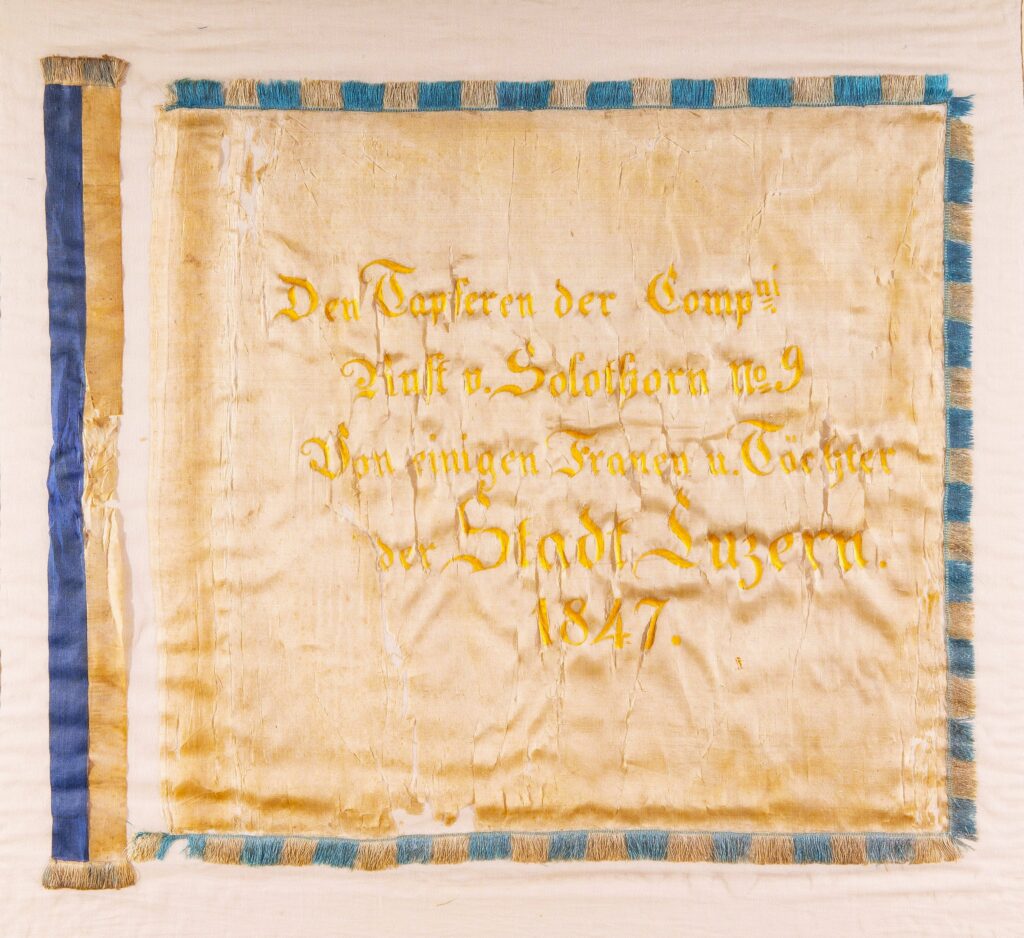 Den Tapferen der Compni
Rust v. Solothorn No 9
Von einigen Frauen u. Töchter
der Stadt Luzern.
1847.